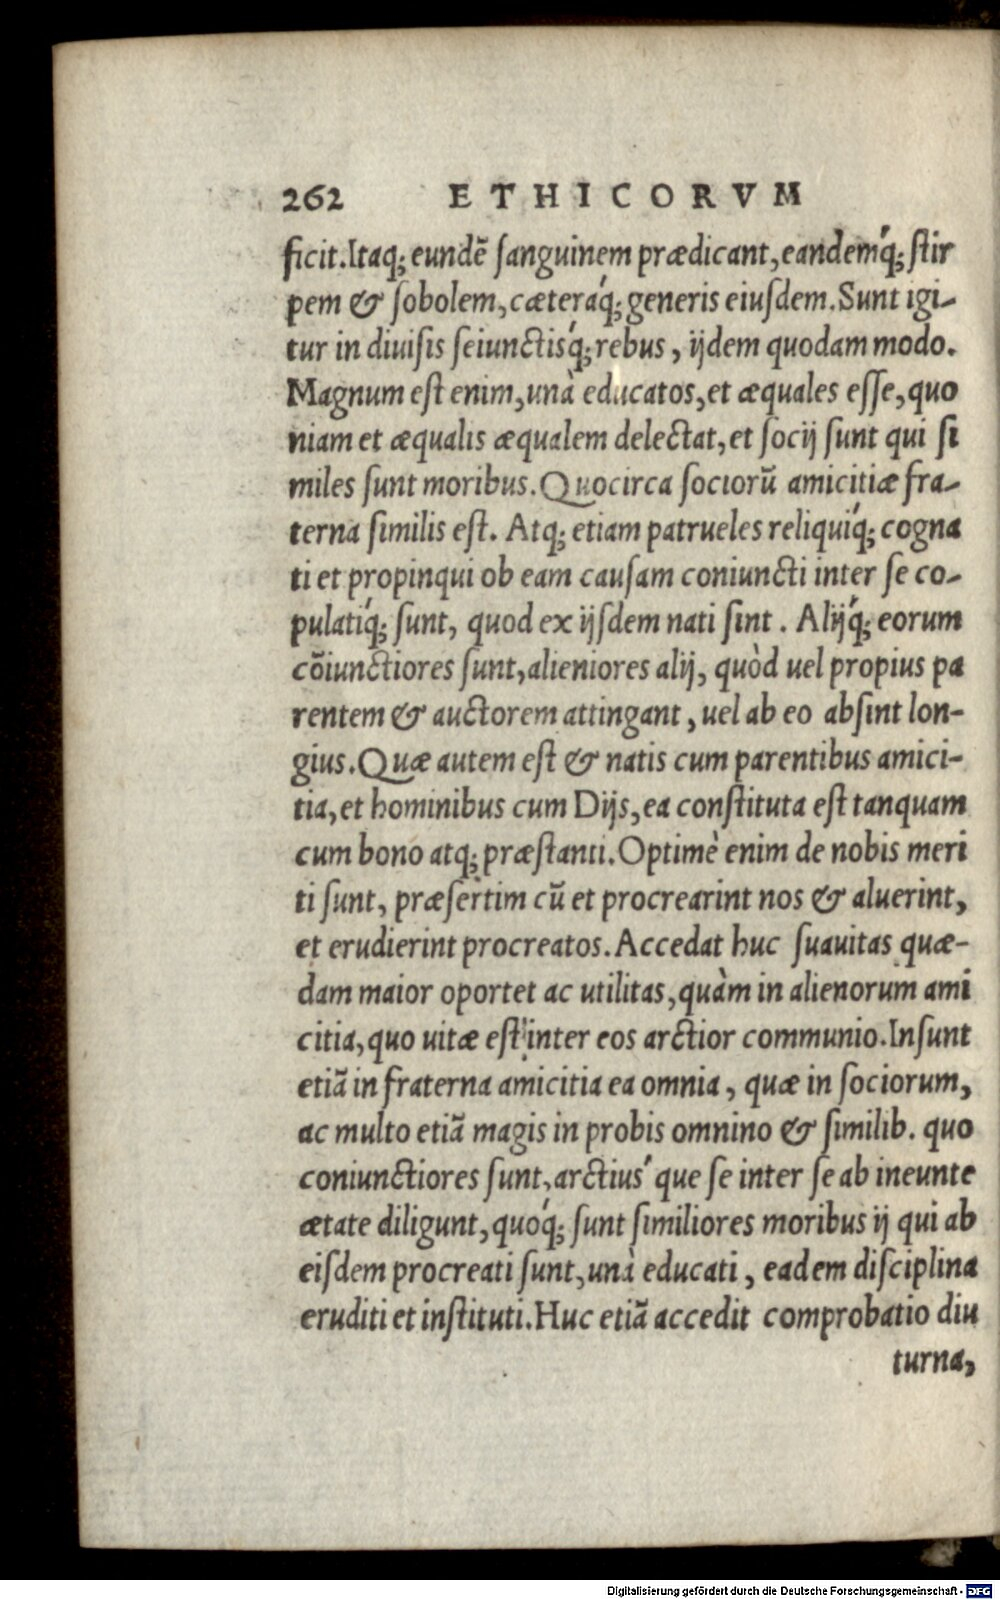 262 ETHICORVM
ficit. Itaq; eundẽ ſanguinem prædicant, eandemq́; ſtir
pem & ſobolem, cæteraq́; generis eiuſdem. Sunt igi-
tur in diuiſis ſeiunctisq́; rebus, ijdem quodam modo.
Magnum eſt enim, unà educatos, et æquales eſſe, quo
niam et æqualis æqualem delectat, et ſocij ſunt qui ſi
miles ſunt moribus. Quocirca ſociorũ amicitiæ fra-
terna ſimilis eſt. Atq; etiam patrueles reliquiq́; cogna
ti et propinqui ob eam cauſam coniuncti inter ſe co-
pulatiq́; ſunt, quod ex ijſdem nati ſint. Alijq́; eorum
cõiunctiores ſunt, alieniores alij, quòd uel propius pa
rentem & auctorem attingant, uel ab eo abſint lon-
gius. Quæ autem eſt & natis cum parentibus amici-
tia, et hominibus cum Dijs, ea conſtituta eſt tanquam
cum bono atq; præſtanti. Optimè enim de nobis meri
ti ſunt, præſertim cũ et procrearint nos & aluerint,
et erudierint procreatos. Accedat huc ſuauitas quæ-
dam maior oportet ac utilitas, quàm in alienorum ami
citia, quo uitæ eſt inter eos arctior communio. Inſunt
etiã in fraterna amicitia ea omnia, quæ in ſociorum,
ac multo etiã magis in probis omnino & ſimilib. quo
coniunctiores ſunt, arctius´ que ſe inter ſe ab ineunte
ætate diligunt, quoq́; ſunt ſimiliores moribus ij qui ab
eiſdem procreati ſunt, unà educati, eadem diſciplina
eruditi et inſtituti. Huc etiã accedit comprobatio diu
turna,
Digitalisierung gefördert durch die Deutsche Forschungsgemeinschaft - DFG